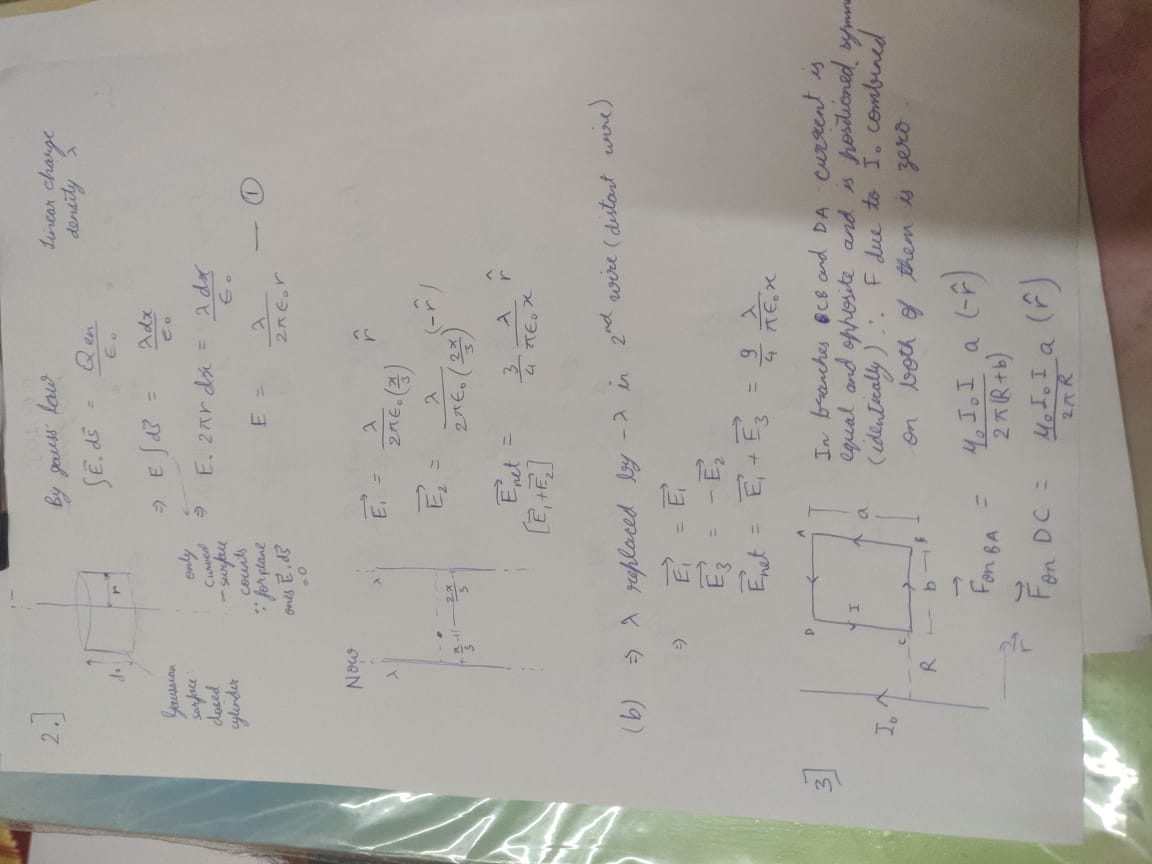 2.]
By gauss law
Linear charge
density λ
∫E⃗. ds⃗ = Q en / ε₀
dx
r
⇒ E ∫ds⃗ = λdx / ε₀
Gaussian
surface:
closed
cylinder
only
curved
surface
counts
∵ for plane
ones E⃗.ds⃗
=0
⇒ E. 2πr dx = λ dx / ε₀
E = λ / 2πε₀r — ①
Now
λ λ
x/3 2x/3
E₁⃗ = λ / 2πε₀(x/3) r̂
E₂⃗ = λ / 2πε₀(2x/3) (-r̂)
E⃗net = 3/4 λ/πε₀x r̂
[E⃗₁+E⃗₂]
(b) ⇒ λ replaced by -λ in 2nd wire (distant wire)
⇒ E₁⃗ = E₁⃗
E₃⃗ = -E₂⃗
E⃗net = E₁⃗ + E₃⃗ = 9/4 λ/πε₀x
3]
D A
I₀ I a
C B
R b
r⃗
In branches CB and DA current is
equal and opposite and is positioned symm
(identically) ∴ F due to I₀ combined
on both of them is zero.
F⃗on BA = μ₀I₀I / 2π(R+b) a (-r̂)
F⃗on DC = μ₀I₀I / 2πR a (r̂)